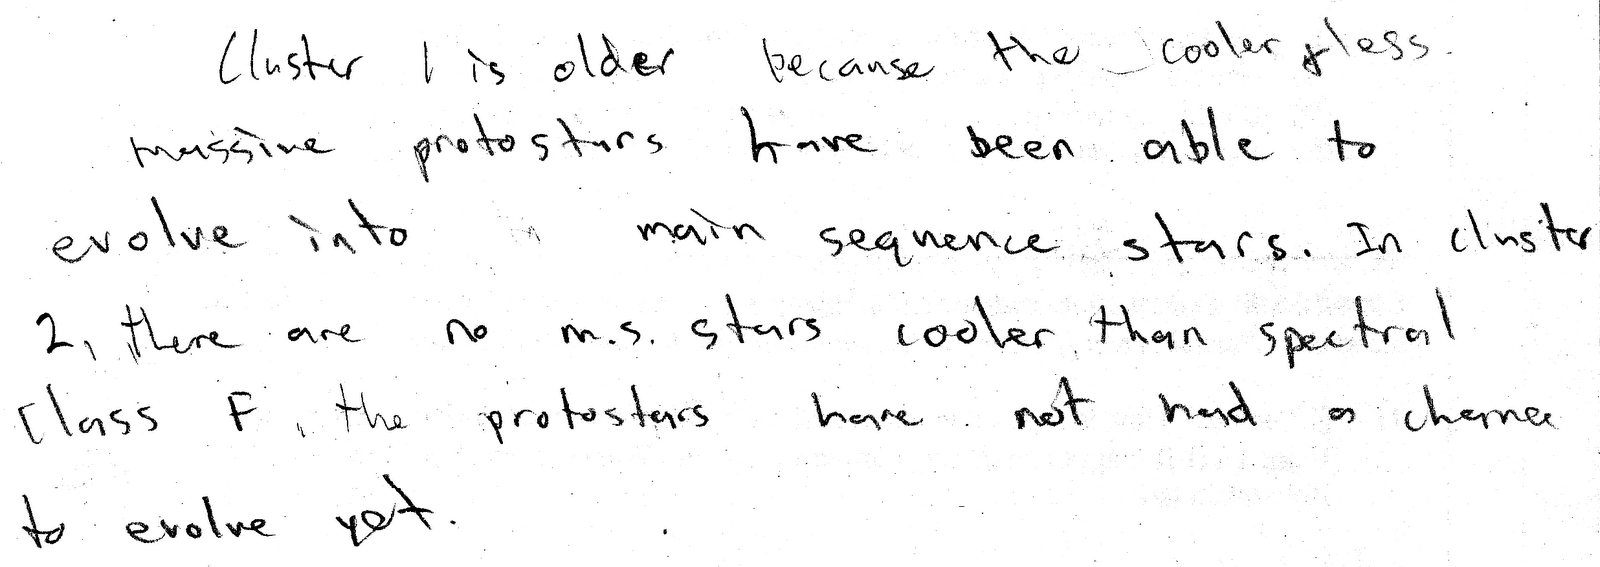 Cluster 1 is older because the cooler & less
massive protostars have been able to
evolve into main sequence stars. In cluster
2, there are no m.s. stars cooler than spectral
class F, the protostars have not had a chance
to evolve yet.